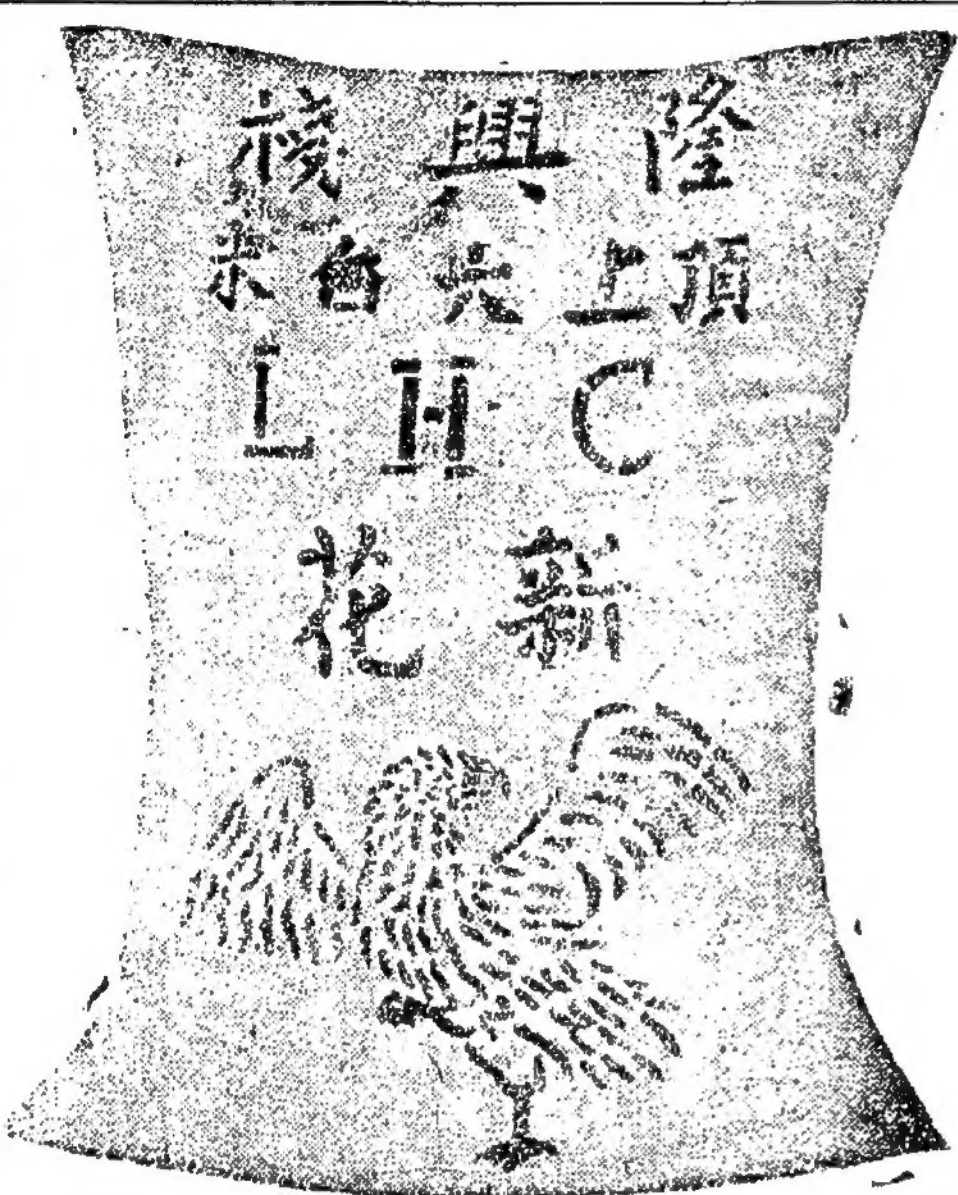 隆興棧
頂上尖米
L H C
新花